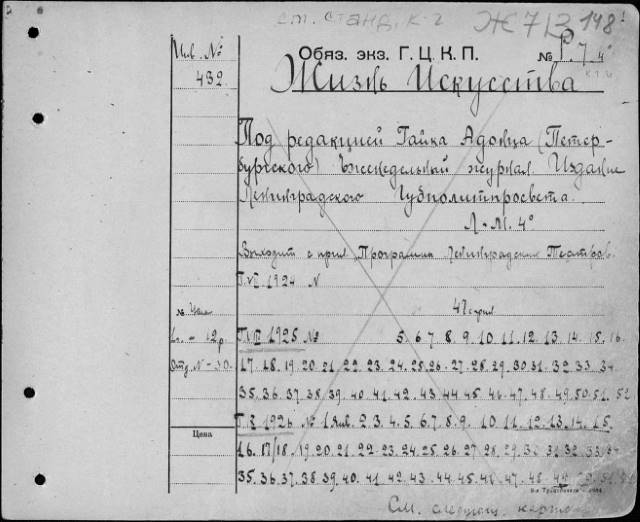 см. станд. к-г Ж713 148
Инв. №
432.
Обяз. экз. Г.Ц.К.П. № Р.7 4°
Жизнь Искусства
Под редакцией Гайка Адонца (Петер-
бургского) Еженедельный журнал. Издание
Ленинградского Губполитпросвета.
Л-М. 4°
Выходит с прил. Программы Ленинградских Театров.
Г.VI 1924 N
№ Цена
1 г. - 12 р.
Отд. N - 30.
Г.VII 1925 № 5. 6. 7. 8. 9. 10. 11. 12. 13. 14. 15. 16.
17. 18. 19. 20. 21. 22. 23. 24. 25. 26. 27. 28. 29. 30. 31. 32. 33. 34
35. 36. 37. 38. 39. 40. 41. 42. 43. 44. 45. 46. 47. 48. 49. 50. 51. 52
1926 № 1 Янв. 2. 3. 4. 5. 6. 7. 8. 9. 10. 11. 12. 13. 14. 15.
Цена
16. 17/18. 19. 20. 21. 22. 23. 24. 25. 26. 27. 28. 29. 30. 31. 32. 33. 34
35. 36. 37. 38. 39. 40. 41. 42. 43. 44. 45. 46. 47. 48. 49. 50. 51.
См. следующ. карто